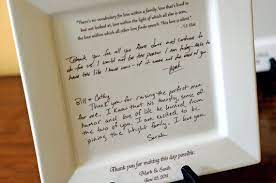 "There's no vocabulary for love within a family, love that's lived in
but not looked at, love within the light of which all else is seen,
the love within which all other love finds speech. This love is silent."
Thank you for all you have done and continue to
do for us! I could not be the person I am today
have this life I have now - if it were not the
Bill & Cathy,
Thank you for raising the perfect man
for me. I know that his sense of
humor and love of life he learned from
the two of you. I am excited to be
joining the Wright family. I love you.
Sarah
Thank you for making this day possible.
Mark & Sarah